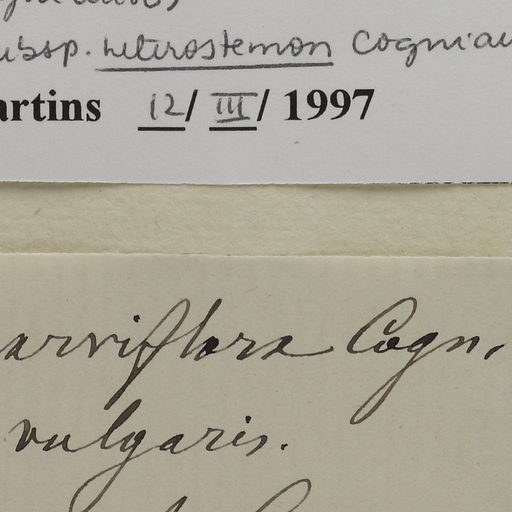 ubsp. heterostemon Cogniau
artins 12/ III/ 1997
arviflora Cogn.
vulgaris.